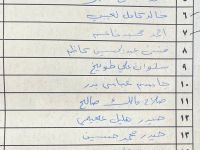 ٥
٦ خالد كامل لعيبي
٧ احمد محمد قاسم
٨ حسن عبد الحسين كاظم
٩ سلوان علي طويخ
١٠ جاسم عباس بدر
١١ صلاح مالك صالح
١٢ حيدر هليل
١٣ حيدر محمد حسين